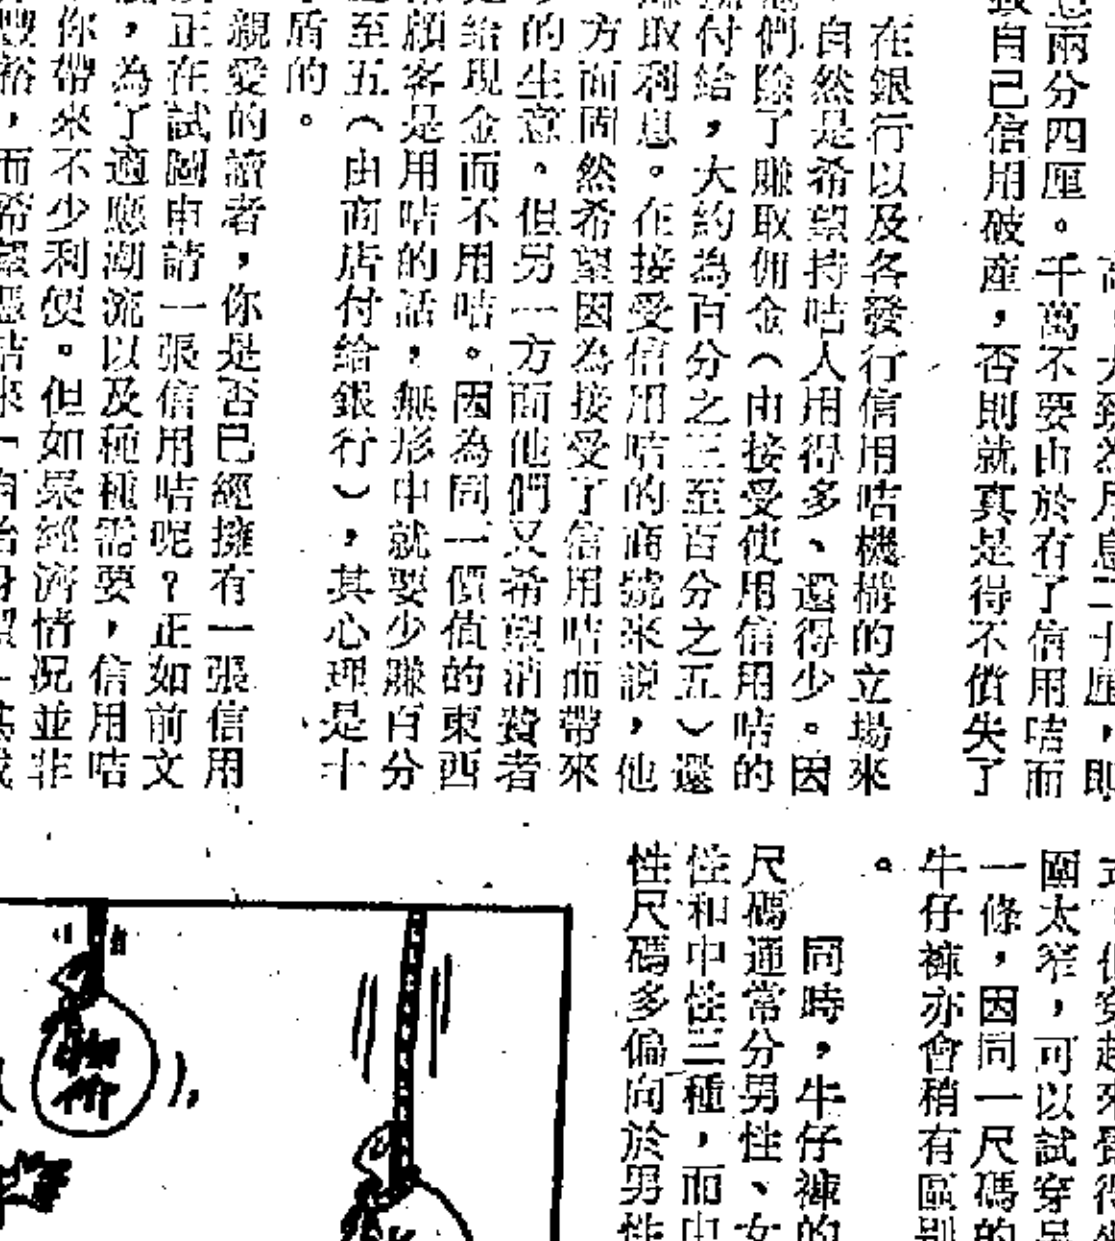 高，大致為月息二十厘，即
兩分四厘。千萬不要由於有了信用咭而
致自己信用破產，否則就真是得不償失了
在銀行以及各發行信用咭機構的立場來
，自然是希望持咭人用得多、還得少。因
他們除了賺取佣金（由接受使用信用咭的
付給，大約為百分之三至百分之五）還
賺取利息。在接受信用咭的商號來說，他
方面固然希望因為接受了信用咭而帶來
的生意。但另一方面他們又希望消費者
是給現金而不用咭。因為同一價值的東西
顧客是用咭的話，無形中就要少賺百分
至五（由商店付給銀行），其心理是十
盾的。
親愛的讀者，你是否已經擁有一張信用
正在試圖申請一張信用咭呢？正如前文
，為了適應潮流以及種種需要，信用咭
你帶來不少利便。但如果經濟情況並非
裕，而希望憑咭來「
但穿起來覺得
圍太窄，可以試穿另
一條，因同一尺碼的
牛仔褲亦會稍有區別
。
同時，牛仔褲的
尺碼通常分男性、女
性和中性三種，而中
性尺碼多偏向於男性
物價